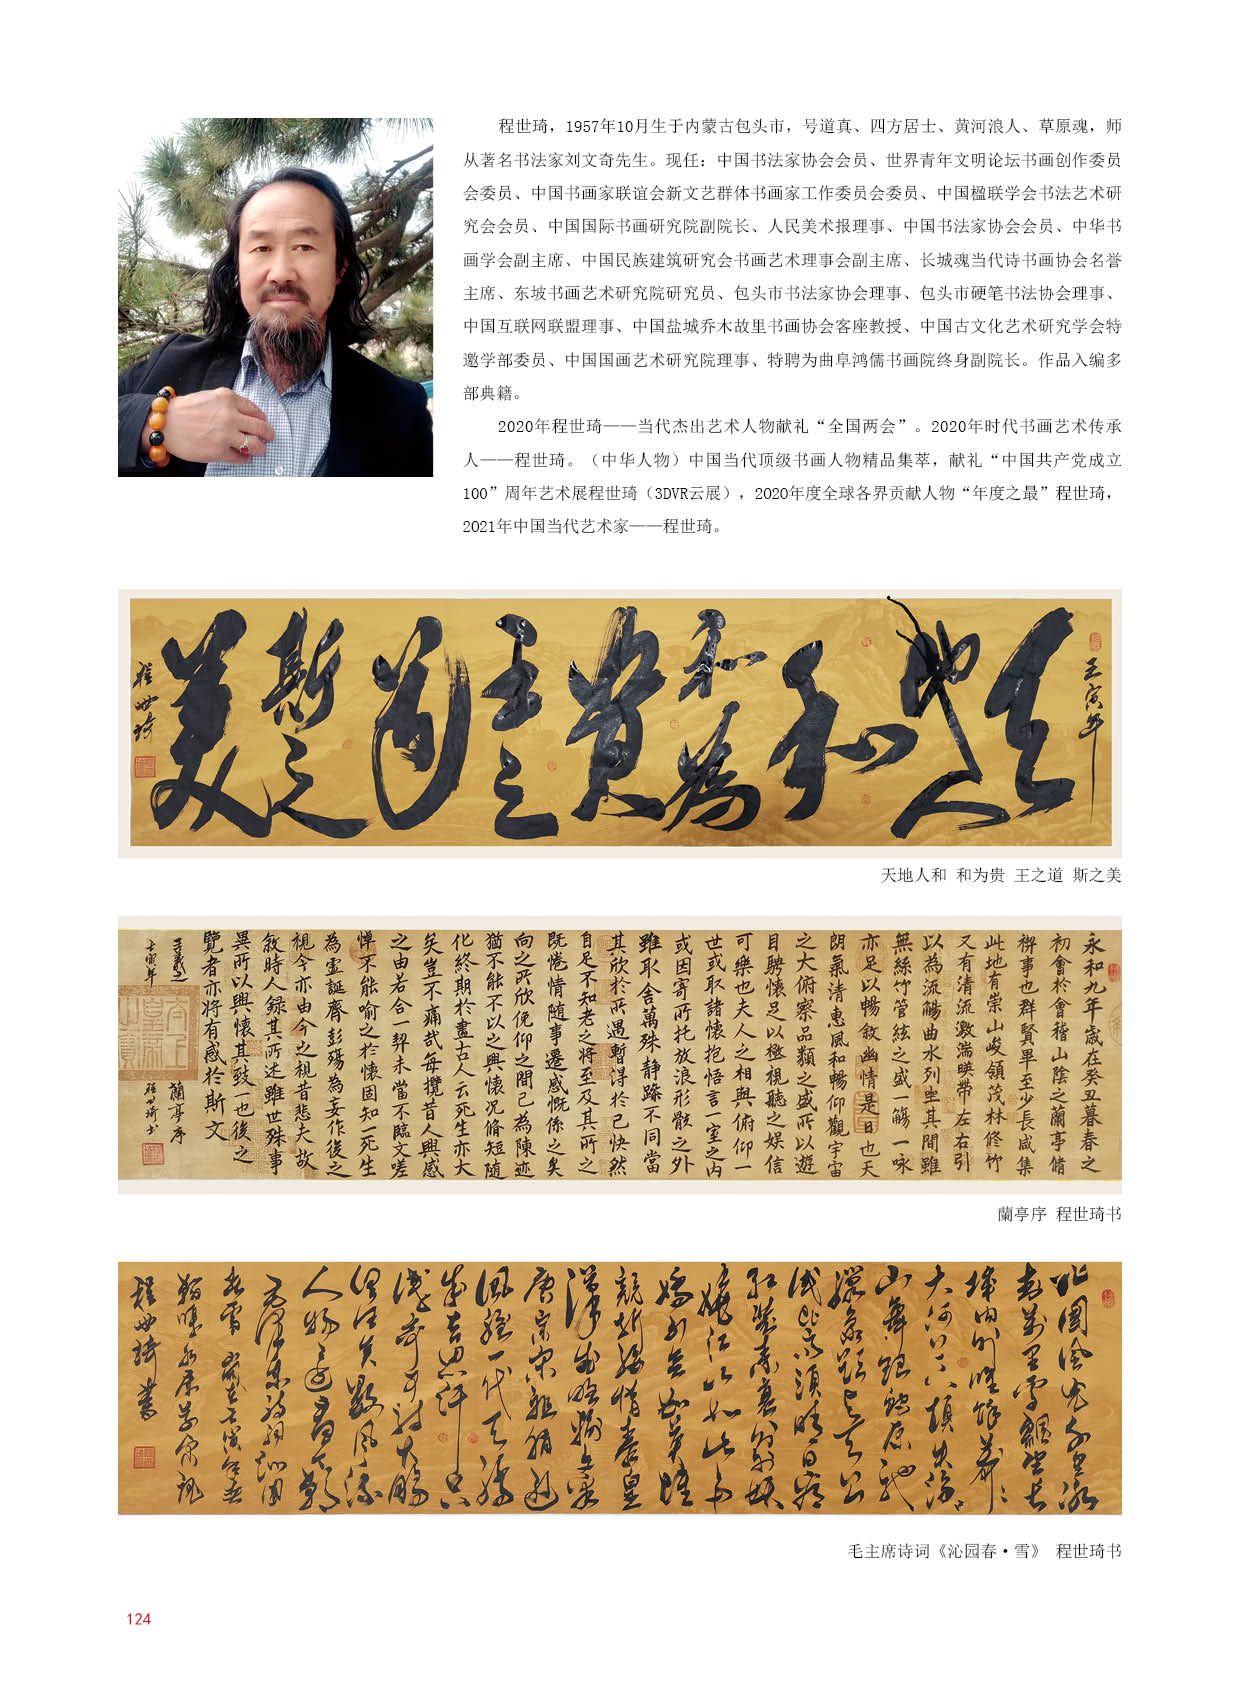 程世琦，1957年10月生于内蒙古包头市，号道真、四方居士、黄河浪人、草原魂，师
从著名书法家刘文奇先生。现任：中国书法家协会会员、世界青年文明论坛书画创作委员
会委员、中国书画家联谊会新文艺群体书画家工作委员会委员、中国楹联学会书法艺术研
究会会员、中国国际书画研究院副院长、人民美术报理事、中国书法家协会会员、中华书
画学会副主席、中国民族建筑研究会书画艺术理事会副主席、长城魂当代诗书画协会名誉
主席、东坡书画艺术研究院研究员、包头市书法家协会理事、包头市硬笔书法协会理事、
中国互联网联盟理事、中国盐城乔木故里书画协会客座教授、中国古文化艺术研究学会特
邀学部委员、中国国画艺术研究院理事、特聘为曲阜鸿儒书画院终身副院长。作品入编多
部典籍。
2020年程世琦——当代杰出艺术人物献礼“全国两会”。2020年时代书画艺术传承
人——程世琦。（中华人物）中国当代顶级书画人物精品集萃，献礼“中国共产党成立
100”周年艺术展程世琦（3DVR云展），2020年度全球各界贡献人物“年度之最”程世琦，
2021年中国当代艺术家——程世琦。
壬寅年
天地人和和為貴王之道斯之美
程世琦
天地人和 和为贵 王之道 斯之美
永和九年歲在癸丑暮春之
初會於會稽山陰之蘭亭脩
禊事也群賢畢至少長咸集
此地有崇山峻領茂林修竹
又有清流激湍映帶左右引
以為流觴曲水列坐其間雖
無絲竹管絃之盛一觴一咏
亦足以暢敘幽情是日也天
朗氣清惠風和暢仰觀宇宙
之大俯察品類之盛所以遊
目騁懷足以極視聽之娛信
可樂也夫人之相與俯仰一
世或取諸懷抱悟言一室之内
或因寄所托放浪形骸之外
雖取舍萬殊静躁不同當
其欣於所遇暫得於己快然
自足不知老之將至及其所之
既惓情隨事遷感慨係之矣
向之所欣俛仰之間已為陳迹
猶不能不以之興懷況脩短隨
化終期於盡古人云死生亦大
矣豈不痛哉每攬昔人興感
之由若合一契未嘗不臨文嗟
悼不能喻之於懷固知一死生
為虛誕齊彭殤為妄作後之
視今亦由今之視昔悲夫故
敘時人録其所述雖世殊事
異所以興懷其致一也後之
覽者亦將有感於斯文
王羲之
蘭亭序
壬寅年
程世琦书
蘭亭序 程世琦书
北國風光千里冰
封萬里雪飄望長
城内外惟餘莽莽
大河上下頓失滔滔
山舞銀蛇原馳
蠟象欲與天公
試比高須晴日看
紅裝素裹分外妖
嬈江山如此多
嬌引無數英雄
競折腰惜秦皇
漢武略輸文采
唐宗宋祖稍遜
風騷一代天驕
成吉思汗只
識彎弓射大雕
俱往矣數風流
人物還看今朝
毛澤東詩詞沁園
春雪
程世琦書
毛主席诗词《沁园春·雪》 程世琦书
124